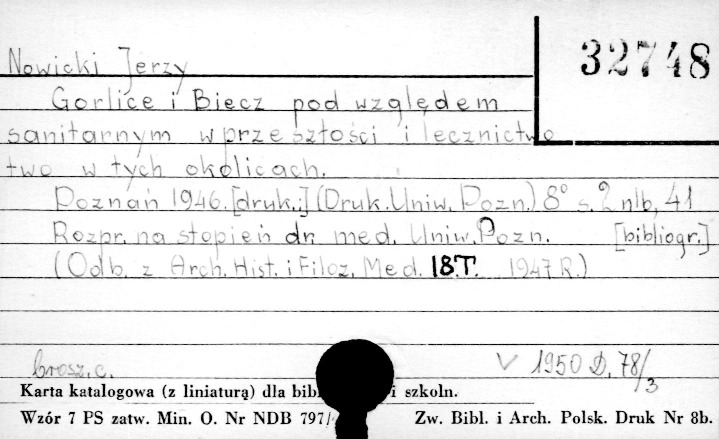 32748
Nowicki Jerzy
Gorlice i Biecz pod względem
sanitarnym w przeszłości i lecznictwo
two w tych okolicach.
Poznań 1946. [druk.:] (Druk. Uniw. Pozn.) 8° s. 2 nlb, 41
Rozpr. na stopień dr. med. Uniw. Pozn. [bibliogr.]
(Odb. z Arch. Hist. i Filoz. Med. 18.T. 1947 R.)
brosz. c. V 1950 D. 78/3
Karta katalogowa (z liniaturą) dla bibl i szkoln.
Wzór 7 PS zatw. Min. O. Nr NDB 797/ Zw. Bibl. i Arch. Polsk. Druk Nr 8b.